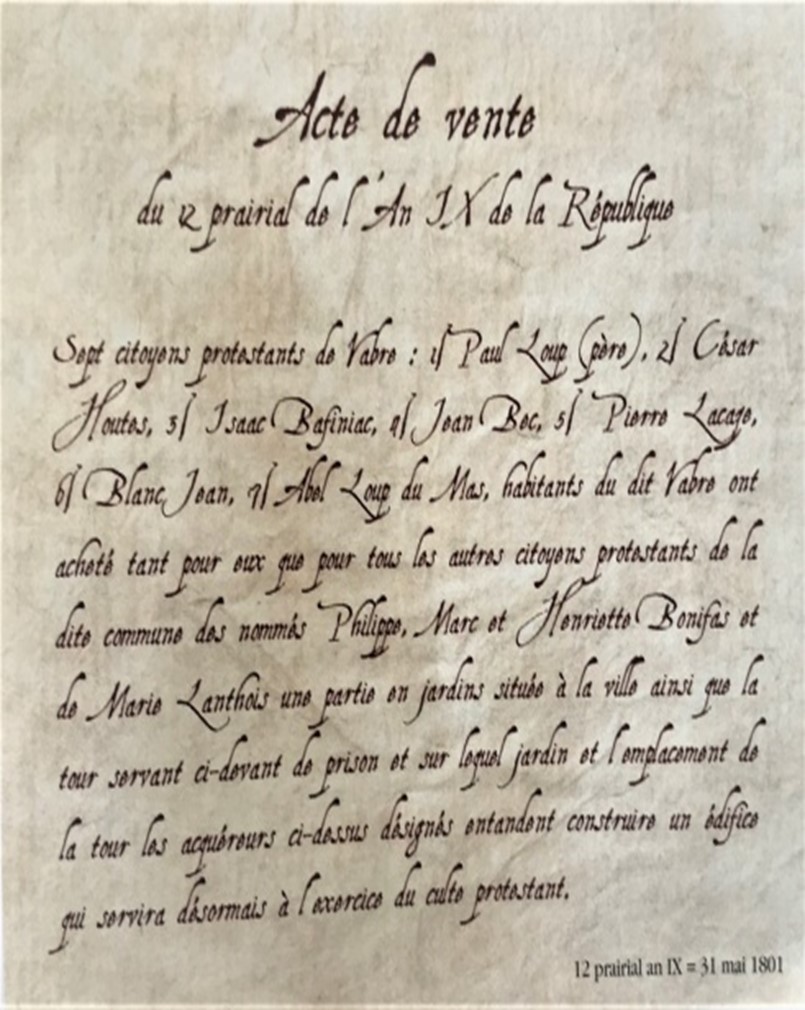 Acte de vente
du 12 prairial de l'An IX de la République
Sept citoyens protestants de Vabre : 1/ Paul Loup (père), 2/ César
Houtes, 3/ Isaac Bafiniac, 4/ Jean Bec, 5/ Pierre Lacaze,
6/ Blanc Jean, 7/ Abel Loup du Mas, habitants du dit Vabre ont
acheté tant pour eux que pour tous les autres citoyens protestants de la
dite commune des nommés Philippe, Marc et Henriette Bonifas et
de Marie Lanthois une partie en jardins située à la ville ainsi que la
tour servant ci-devant de prison et sur lequel jardin et l'emplacement de
la tour les acquéreurs ci-dessus désignés entandent construire un édifice
qui servira désormais à l'exercice du culte protestant.
12 prairial an IX = 31 mai 1801